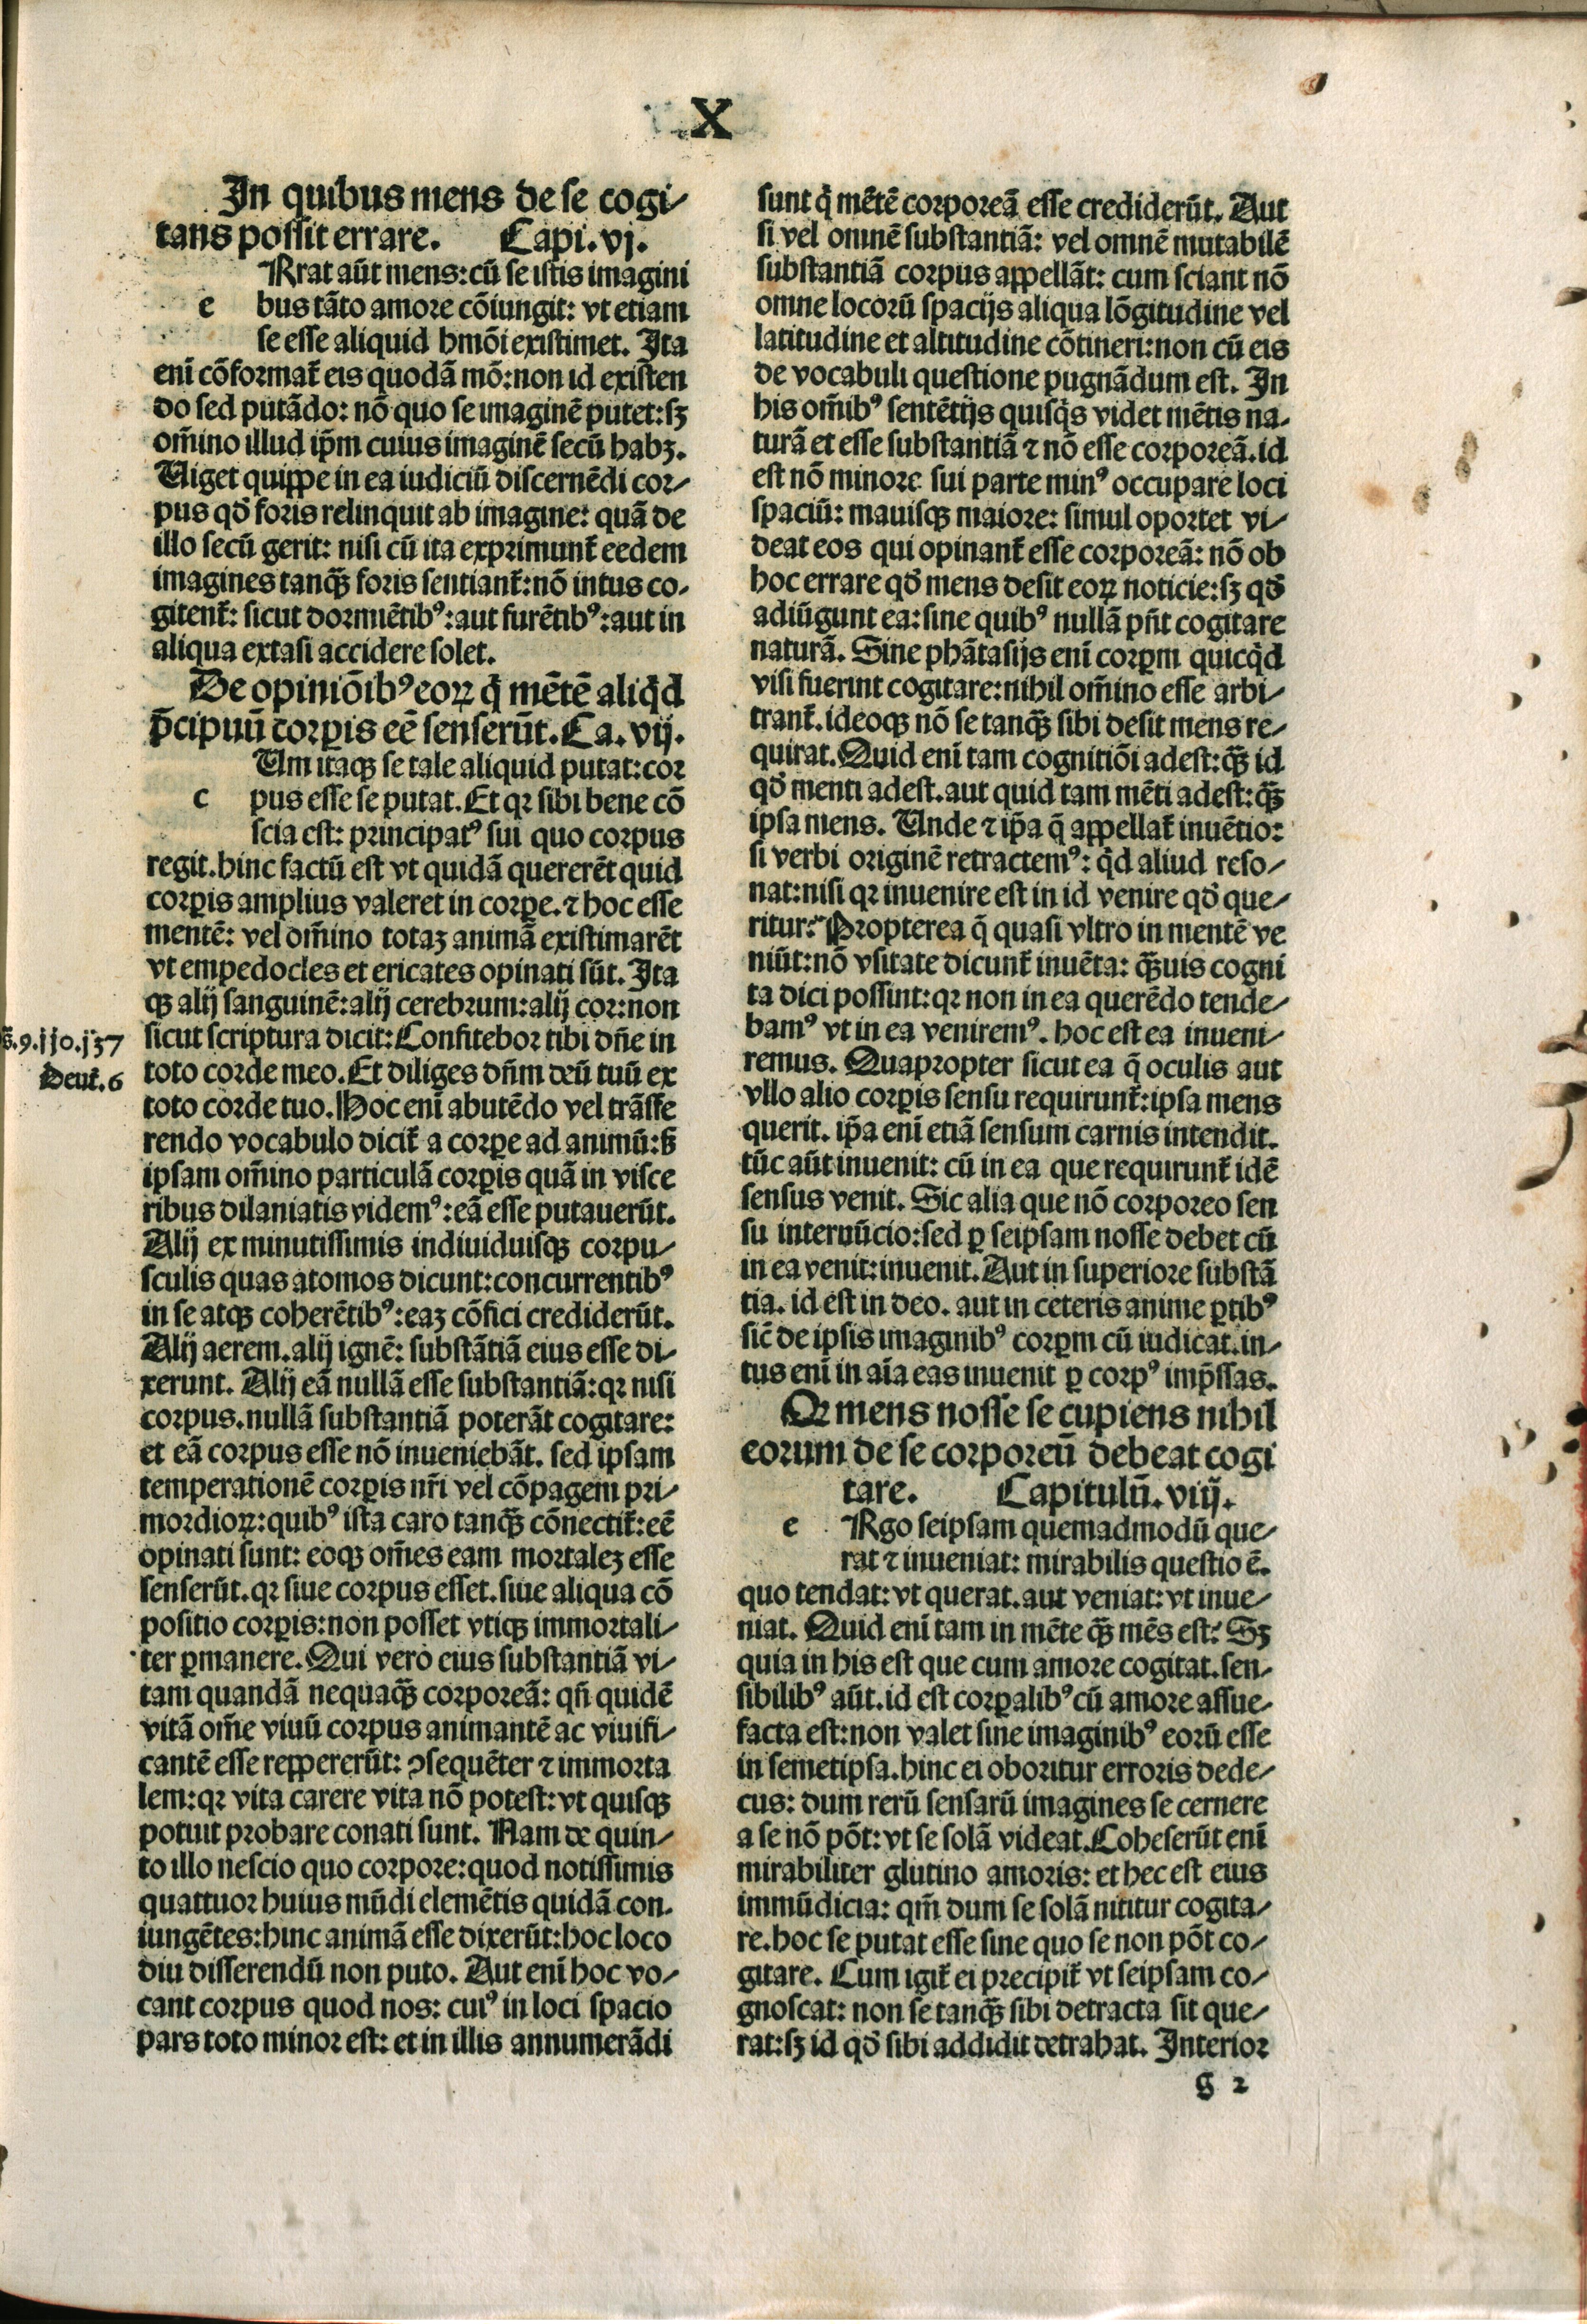 X
In quibus mens de se cogi⸗
tans possit errare. Capi. vj.
ERrat aūt mens: cū se istis imagini
e bus tāto amore cōiungit: vt etiam
se esse aliquid hmōi existimet. Ita
eni cōformat̄ eis quodā mō: non id existen
do sed putādo: nō quo se imaginē putet: sꝫ
om̄ino illud ip̄m cuius imaginē secū habꝫ.
Uiget quippe in ea iudiciū discernēdi cor⸗
pus qd̓ foris relinquit ab imagine: quā de
illo secū gerit: nisi cū ita exprimunt̄ eedem
imagines tanqȝ̄ foris sentiant̄: nō intus co⸗
gitent̄: sicut dormiētibꝰ: aut furētibꝰ: aut in
aliqua extasi accidere solet.
De opiniōibꝰ eoꝝ q̇ mētē aliq̇d
p̄cipuū corꝑis eē senserūt. Ca. vij.
Um itaqȝ se tale aliquid putat: cor
c pus esse se putat. Et qꝛ sibi bene cō
scia est: principatꝰ sui quo corpus
regit. hinc factū est vt quidā quererēt quid
corꝑis amplius valeret in corꝑe. ⁊ hoc esse
mentē: vel om̄ino totaꝫ animā existimarēt
vt empedocles et ericates opinati sūt. Ita
qȝ alij sanguinē: alij cerebrum: alij cor: non
sicut scriptura dicit: Confitebor tibi dn̄e in
toto corde meo. Et diliges dn̄m deū tuū ex
toto corde tuo. Hoc eni abutēdo vel trāsfe
rendo vocabulo dicit̄ a corꝑe ad animū: s̄
ipsam om̄ino particulā corꝑis quā in visce
ribus dilaniatis videmꝰ: eā esse putauerūt.
Alij ex minutissimis indiuiduisqȝ corpu⸗
sculis quas atomos dicunt: concurrentibꝰ
in se atqȝ coherētibꝰ: eaꝫ cōfici crediderūt.
Alij aerem. alij ignē: substātiā eius esse di⸗
xerunt. Alij eā nullā esse substantiā: qꝛ nisi
corpus. nullā substantiā poterāt cogitare:
et eā corpus esse nō inueniebāt. sed ipsam
temperationē corꝑis nr̄i vel cōpagem pri⸗
mordioꝝ: quibꝰ ista caro tanqȝ̄ cōnectit̄: eē
opinati sunt: eoqȝ om̄es eam mortaleꝫ esse
senserūt. qꝛ siue corpus esset. siue aliqua cō
positio corꝑis: non posset vtiqȝ immortali⸗
ter ꝑmanere. Qui vero eius substantiā vi⸗
tam quandā nequaqȝ̄ corporeā: qn̄ quidē
vitā om̄e viuū corpus animantē ac viuifi⸗
cantē esse reppererūt: ↄsequēter ⁊ immorta
lem: qꝛ vita carere vita nō potest: vt quisqȝ
potuit probare conati sunt. Nam de quin⸗
to illo nescio quo corpore: quod notissimis
quattuor huius mūdi elemētis quidā con⸗
iungētes: hinc animā esse dixerūt: hoc loco
diu disserendū non puto. Aut eni hoc vo⸗
cant corpus quod nos: cuiꝰ in loci spacio
pars toto minor est: et in illis annumerādi
.9.jj0.j37
Deut̄. 6
sunt q̇ mētē corporeā esse crediderūt. Aut
si vel omnē substantiā: vel omnē mutabilē
substantiā corpus appellāt: cum sciant nō
omne locorū spacijs aliqua lōgitudine vel
latitudine et altitudine cōtineri: non cū eis
de vocabuli questione pugnādum est. In
his om̄ibꝰ sentētijs quisq̇s videt mētis na⸗
turā et esse substantiā ⁊ nō esse corporeā. id
est nō minore sui parte minꝰ occupare loci
spaciū: mauisqȝ maiore: simul oportet vi⸗
deat eos qui opinant̄ esse corporeā: nō ob
hoc errare qd̓ mens desit eoꝝ noticie: sꝫ qd̓
adiūgunt ea: sine quibꝰ nullā pn̄t cogitare
naturā. Sine phātasijs eni corꝑm quicq̇d
visi fuerint cogitare: nihil om̄ino esse arbi⸗
trant̄. ideoqȝ nō se tanqȝ̄ sibi desit mens re⸗
quirat. Quid eni tam cognitiōi adest: qȝ̄ id
qd̓ menti adest. aut quid tam mēti adest: qȝ̄
ipsa mens. Unde ⁊ ip̄a q̄ appellat̄ inuētio:
si verbi originē retractemꝰ: q̇d aliud reso⸗
nat: nisi qꝛ inuenire est in id venire qd̓ que⸗
ritur? Propterea q̄ quasi vltro in mentē ve
niūt: nō vsitate dicunt̄ inuēta: qȝ̄uis cogni
ta dici possint: qꝛ non in ea querēdo tende⸗
bamꝰ vt in ea veniremꝰ. hoc est ea inueni⸗
remus. Quapropter sicut ea q̄ oculis aut
vllo alio corꝑis sensu requirunt̄: ipsa mens
querit. ip̄a eni etiā sensum carnis intendit.
tūc aūt inuenit: cū in ea que requirunt̄ idē
sensus venit. Sic alia que nō corporeo sen
su internūcio: sed ꝑ seipsam nosse debet cū
in ea venit: inuenit. Aut in superiore substā
tia. id est in deo. aut in ceteris anime ꝑtibꝰ
sic̄ de ipsis imaginibꝰ corꝑm cū iudicat. in⸗
tus eni in aīa eas inuenit ꝑ corpꝰ imp̄ssas.
Qꝛ mens nosse se cupiens nihil
eorum de se corporeū debeat cogi
tare. Capitulū. viij.
e Rgo seipsam quemadmodū que⸗
rat ⁊ inueniat: mirabilis questio ē.
quo tendat: vt querat. aut veniat: vt inue⸗
niat. Quid eni tam in mēte qȝ̄ mēs est? Sꝫ
quia in his est que cum amore cogitat. sen⸗
sibilibꝰ aūt. id est corꝑalibꝰ cū amore assue⸗
facta est: non valet sine imaginibꝰ eorū esse
in semetipsa. hinc ei oboritur erroris dede⸗
cus: dum rerū sensarū imagines se cernere
a se nō pōt: vt se solā videat. Coheserūt eni
mirabiliter glutino amoris: et hec est eius
immūdicia: qm̄ dum se solā nititur cogita⸗
re. hoc se putat esse sine quo se non pōt co⸗
gitare. Cum igit̄ ei precipit̄ vt seipsam co⸗
gnoscat: non se tanqȝ̄ sibi detracta sit que⸗
rat: sꝫ id qd̓ sibi addidit detrahat. Interior
g 2